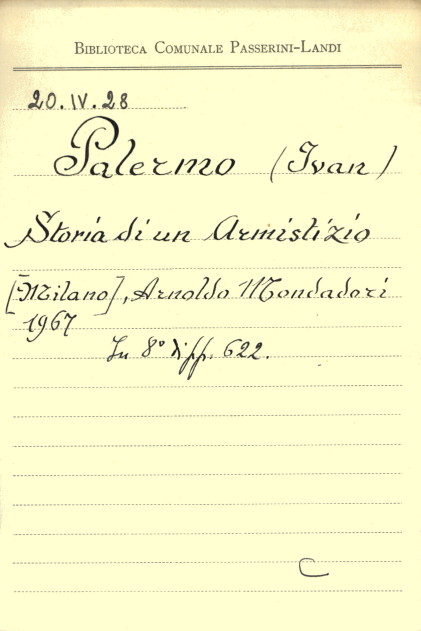 BIBLIOTECA COMUNALE PASSERINI-LANDI
20.IV.28
Palermo (Ivan)
Storia di un Armistizio
[Milano], Arnoldo Mondadori
1967
In 8° di pp. 622.
C